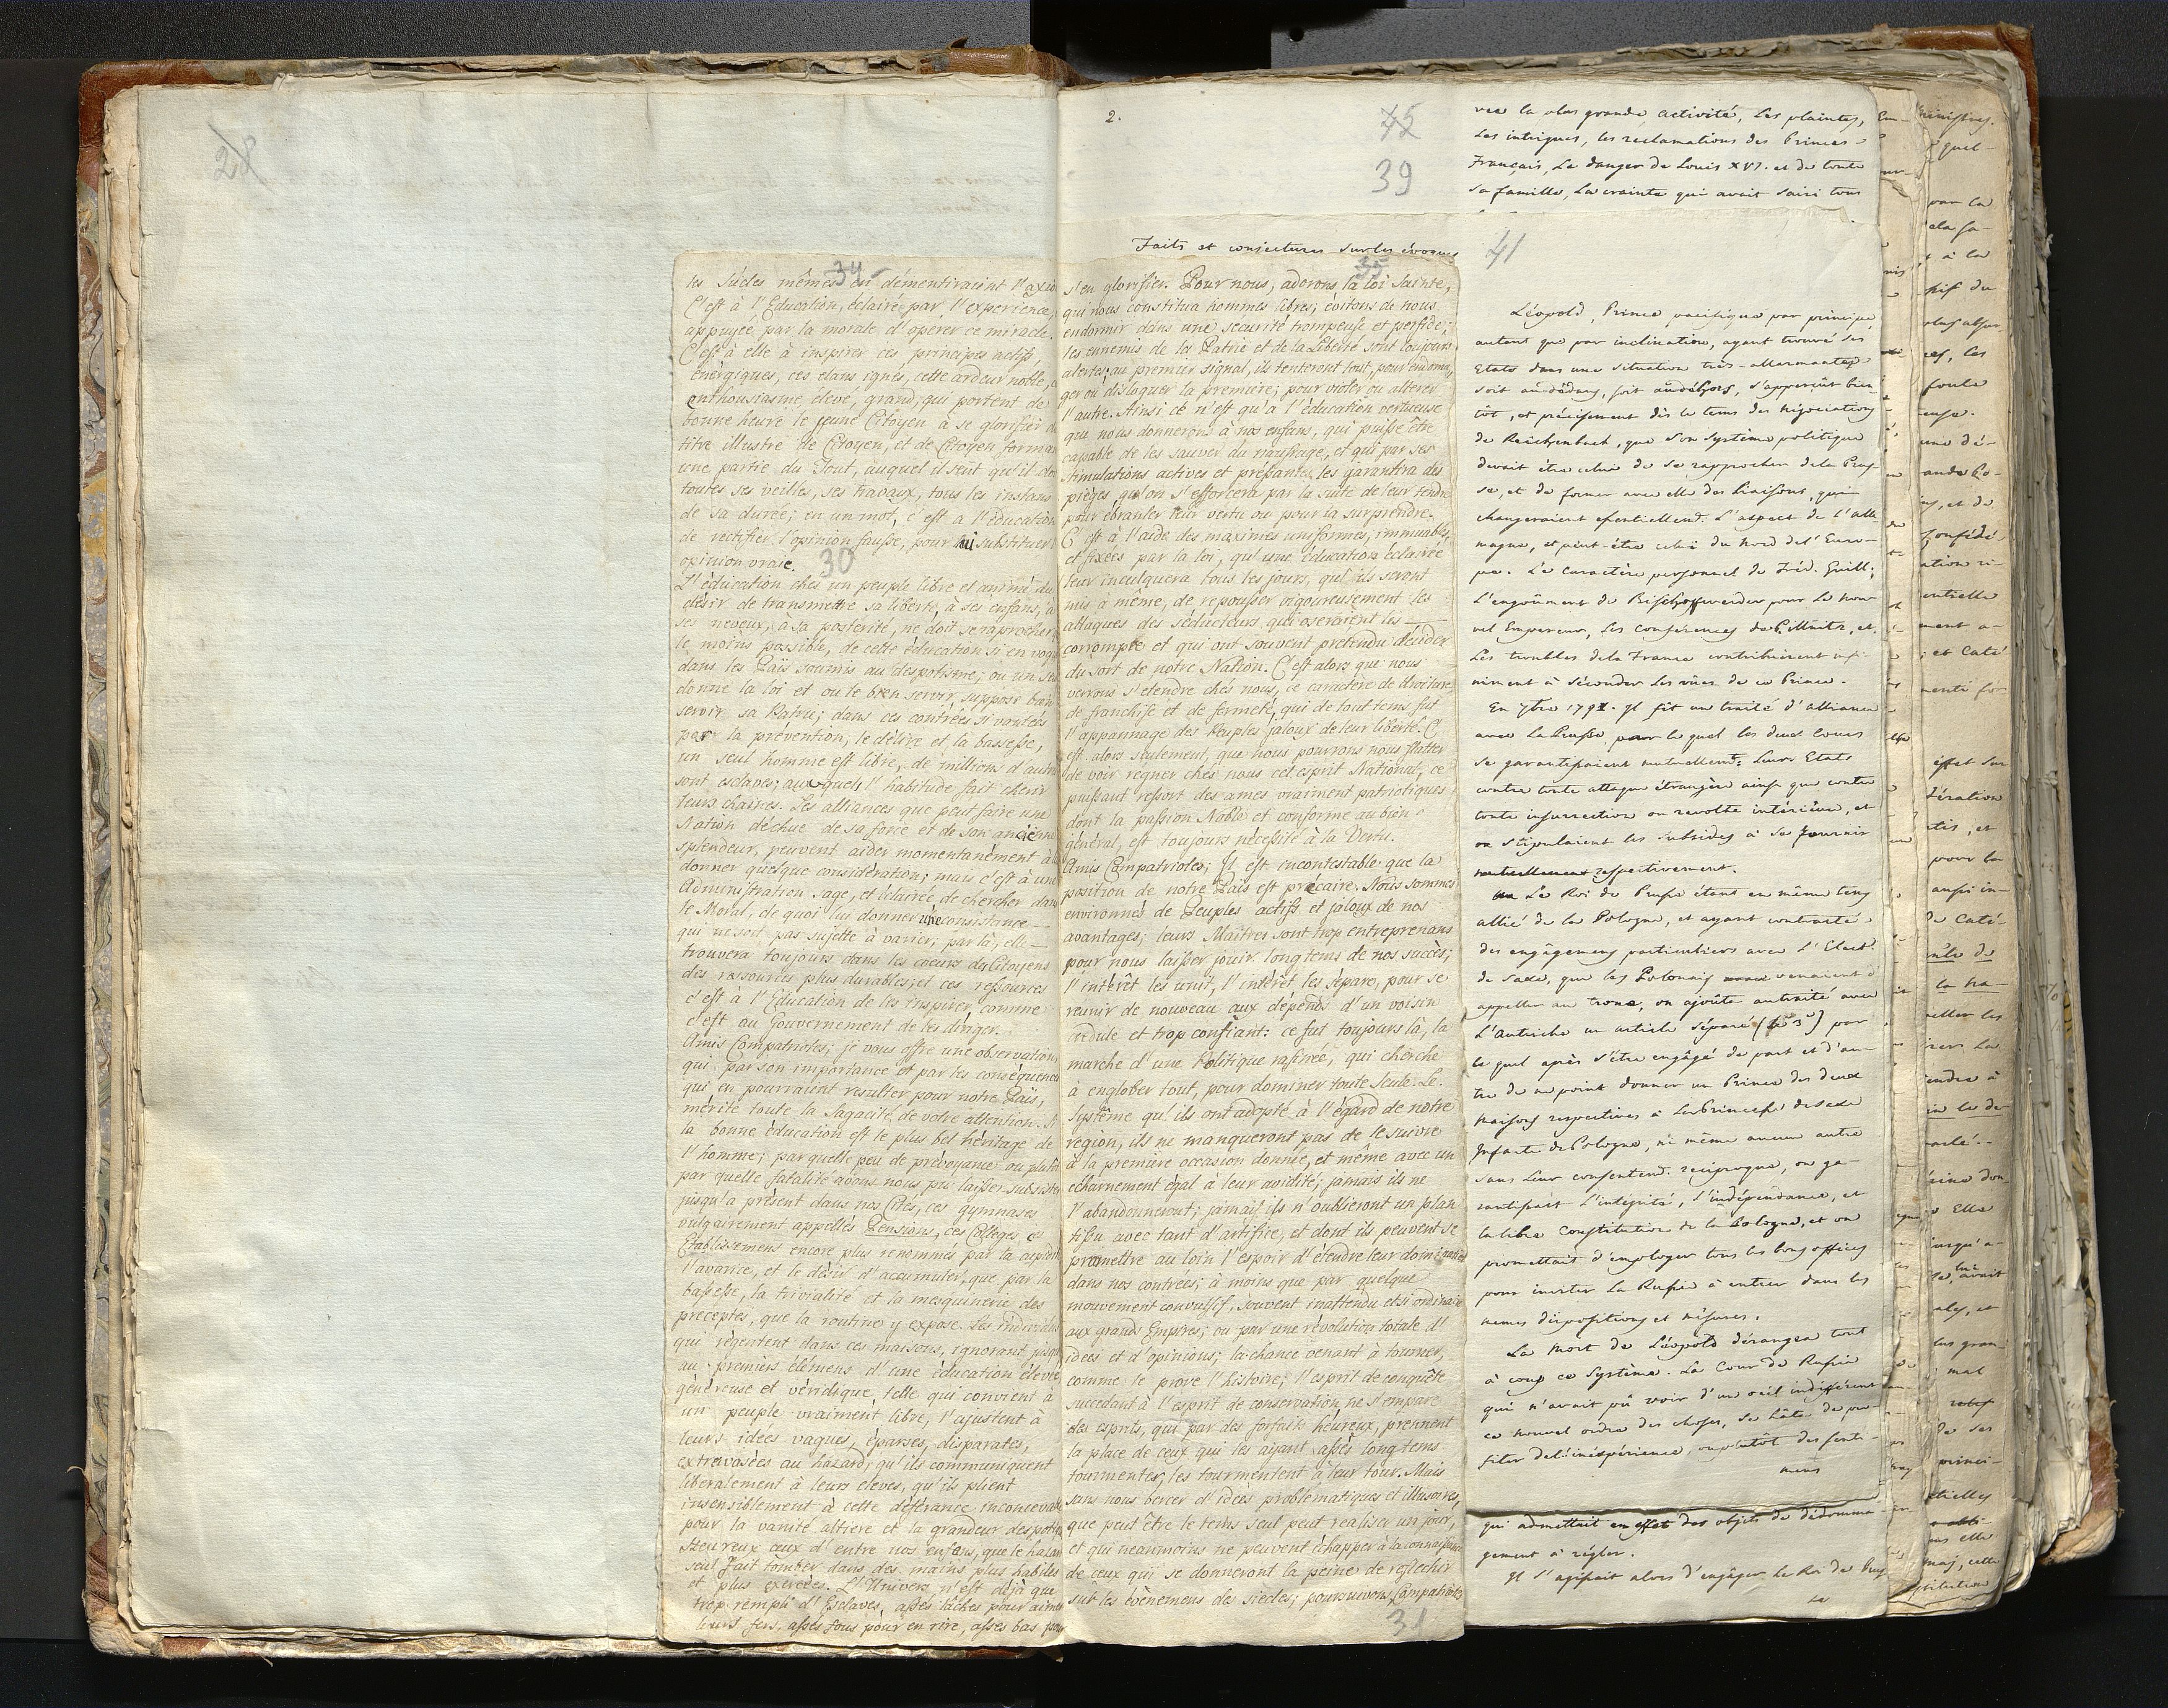 28
34
les siécles mêmes en démentiraient l'axio
C'est à l'Education, éclairée par l'experience,
appuyée par la morale d'opérer ce miracle.
C'est à elle à inspirer ces principes actifs,
énérgiques, ces élans ignés, cette ardeur noble,
enthousiasme élevé, grand, qui portent de
bonne heure le jeune Citoyen à se glorifier d
titre illustre de Citoyen, et de Citoyen forma
une partie du Tout, auquel il sent qu'il doi
toutes ses veilles, ses travaux, tous les instans
de sa durée; en un mot, c'est a l'éducation
de rectifier l'opinion fausse, pour lui substituer
opinion vraie.
30
L'éducation chés un peuple libre et animé du
désir de transmettre sa liberté, à ses enfans, à
ses neveux, à sa postérité, ne doit se raprocher
le moins possible, de cette éducation si en vogu
dans les Païs soumis au despotisme; ou un seu
donne la loi et ou le bien servir, suppose bien
servir sa Patrie; dans ces contrées si vantées
par la prévention, le délire et la bassesse,
un seul homme est libre, de millions d'autre
sont esclaves; auxquels l'habitude fait chérir
leurs chaines. Les alliances que peut faire une
Nation déchue de sa force et de son ancienne
splendeur, peuvent aider momentanément à lui
donner quelque considération; mais c'est à une
Administration sage, et éclairée de chercher dans
le Moral, de quoi lui donner une consistance
qui ne soit pas sujette à varier; par là, elle
trouvera toujours dans les coeurs des Citoyens
des ressources plus durables; et ces ressources
c'est à l'Education de les inspirer, comme
c'est au Gouvernement de les diriger.
Amis Compatriotes; je vous offre une observation,
qui par son importance et par les conséquences
qui en pourraient resulter pour notre Païs,
mérite toute la sagacité de votre attention. Si
la bonne éducation est le plus bel héritage de
l'homme; par quelle peu de prévoyance ou plutôt
par quelle fatalité avons nous pu laisser subsister
jusqu'à présent dans nos Cités, ces gymnases
vulgairement appellés Pensions, ces Colleges
Etablissemens encore plus renommés par la
l'avarice, et le désir d'accumuler, que par la
bassesse, la trivialité et la mesquinerie des
preceptes, que la routine y expose. Les individus
qui régentent dans ces maisons, ignorant jusqu
au premiers élémens d'une éducation élevée
généreuse et véridique, telle qui convient à
un peuple vraiment libre, l'ajustent à
leurs idées vagues, éparses, disparates,
extravasées au hazard, qu'ils communiquent
libéralement à leurs éleves, qu'ils plient
insensiblement à cette déférance inconcevable
pour la vanité altiere et la grandeur despotiq
Heureux ceux d'entre nos enfans, que le hazar
seul fait tomber dans des mains plus habiles
et plus exercées. L'Univers n'est déjà que
trop rempli d'Esclaves, assés lâches pour aimer
leurs fers, assés fous pour en rire, assés bas pour
2.
45
39
Faits et conjectures sur les époques
35
s'en glorifier. Pour nous, adorons la loi Sainte,
qui nous constitua hommes libres; évitons de nous
endormir dans une sécurité trompeuse et perfide;
les ennemis de la Patrie et de la Liberté sont toujours
alertes; au premier signal, ils tenteront tout, pour endoma
ger ou disloquer la premiere; pour violer ou altérer
l'autre. Ainsi ce n'est qu'à l'éducation vertueuse
que nous donnerons à nos enfans, qui puisse être
capable de les sauver du naufrage, et qui par ses
stimulations actives et pressantes, les garantira des
pièges qu'on s'efforcera par la suite de leur tendre
pour ébranler leur vertu ou pour la surprendre.
C'est à l'aide des maximes uniformes, immuables,
et fixées par la loi, qu'une éducation éclairée
leur inculquera tous les jours, qu'ils seront
mis à même, de repousser vigoureusement les
attaques des séducteurs qui oseraient les
corrompre et qui ont souvent pretendu décider
du sort de notre Nation. C'est alors que nous
verons s'etendre chés nous, ce caractère de droiture,
de franchise et de fermeté, qui de tout tems fut
l'appannage des Peuples jaloux de leur liberté. C'
est alors seulement, que nous pourrons nous flatter
de voir regner chés nous cet esprit National, ce
puissant ressort des ames vraiment patriotiques
dont la passion Noble et conforme au bien
général, est toujours nécessité à la Vertu.
Amis Compatriotes; Il est incontestable que la
position de notre Païs est précaire. Nous sommes
environnés de Peuples actifs et jaloux de nos
avantages; leurs Maîtres sont trop entreprenans
pour nous laisser jouir longtems de nos succès;
l'intérêt les unit, l'intérêt les sépare, pour se
reunir de nouveau aux dépends d'un voisin
crédule et trop confiant: ce fut toujours là, la
marche d'une Politique rafinée, qui cherche
à englober tout, pour dominer toute seule. Le
Système qu'ils ont adopté à l'égard de notre
région, ils ne manqueront pas de le suivre
à la première occasion donnée, et même avec un
acharnement égal à leur avidité; jamais ils ne
l'abandonneront; jamais ils n'oublieront un plan
tissu avec tant d'artifice, et dont ils peuvent se
promettre au loin l'espoir d'étendre leur domination
dans nos contrées; à moins que par quelque
mouvement convulsif, souvent inattendu et si ordinaire
aux grands Empires; ou par une révolution totale d'
idées et d'opinions; la chance venant à tourner,
comme le prove l'histoire; l'esprit de conquête
succedant à l'esprit de conservation, ne s'empare
des esprits, qui par des forfaits héureux, prennent
la place de ceux qui les ayant assés longtems
tourmentés; les tourmentent à leur tour. Mais
sans nous bercer d'idées problématiques et illusoires,
que peut être le tems seul peut realiser un jour,
et qui neanmoins ne peuvent échapper à la connaissance
de ceux qui se donneront la peine de reflechir
sur les évènemens des siecles; poursuivons, Compatriotes
31
vec la plus grande activité, les plaintes,
Les intrigues, les reclamations des Princes
Français, Le danger de Louis XVI. et de toute
sa famille, La crainte qui avait saisi tous
41
Léopold, Prince pacifique par principe
autant que par inclination, ayant trouvé ses
Etats dans une situation très-allarmante
soit au-dédans, soit au-déhors, s'apperçut bien
tôt, et précisement dès le tems des négociations
de Reichenbach, que son système politique
devait être celui de se rapprocher de la Prus
se, et de former avec elle des liaisons, qui
changeraient essentiellemt. l'aspect de l'Alle
magne, et peut-être celui du nord de l'Euro-
pe. Le caractère personnel de Fréd. Guill:
L'engoûment de Bischoffwerder pour le nou
vel Empereur, Les conférences de Pillnitz, et
Les troubles de la France contribuèrent infi
niment à séconder les vûes de ce Prince.
En 7bre 1791. Il fit un traité d'alliance
avec la Prusse, par lequel les deux Cours
se garantissaient mutuellemt. Leurs Etats
contre toute attaque étrangère ainsi que contre
toute insurrection ou revolte intérieure, et
stipulaient les subsides à se fournir
respectivement.
Le Roi de Prusse étant en même tems
allié de la Pologne, et ayant contracté
des engâgemens particuliers avec l'Elect.
de Saxe, que les Polonais venaient d'
appeller au trone, on ajoûta au traité avec
l'Autriche un article séparé (le 3e) par
le quel après s'être engâgé de part et d'au-
tre de ne point donner un Prince des deux
maisons respectives à la Princesse de Saxe
Infante de Pologne, ni même aucun autre
sans leur consentemt. reciproque, on ga-
rantissait l'intégrité, l'indépendance, et
la libre constitution de la Pologne, et on
promettait d'employer tous les bons offices
pour inviter la Russie à entrer dans les
memes dispositions et mésures.
La mort de Léopold dérangea tout
à coup ce Système. La Cour de Russie
qui n'avait pû voir d'un oeil indifférent
ce nouvel ordre des choses, se hâta de pro
fiter de l'inéxpérience, ou plutôt des senti-
mens
qui admettait en effet des objets de dédomma-
gement à régler.
Il s'agissait alors d'engâger le Roi de Prus
se